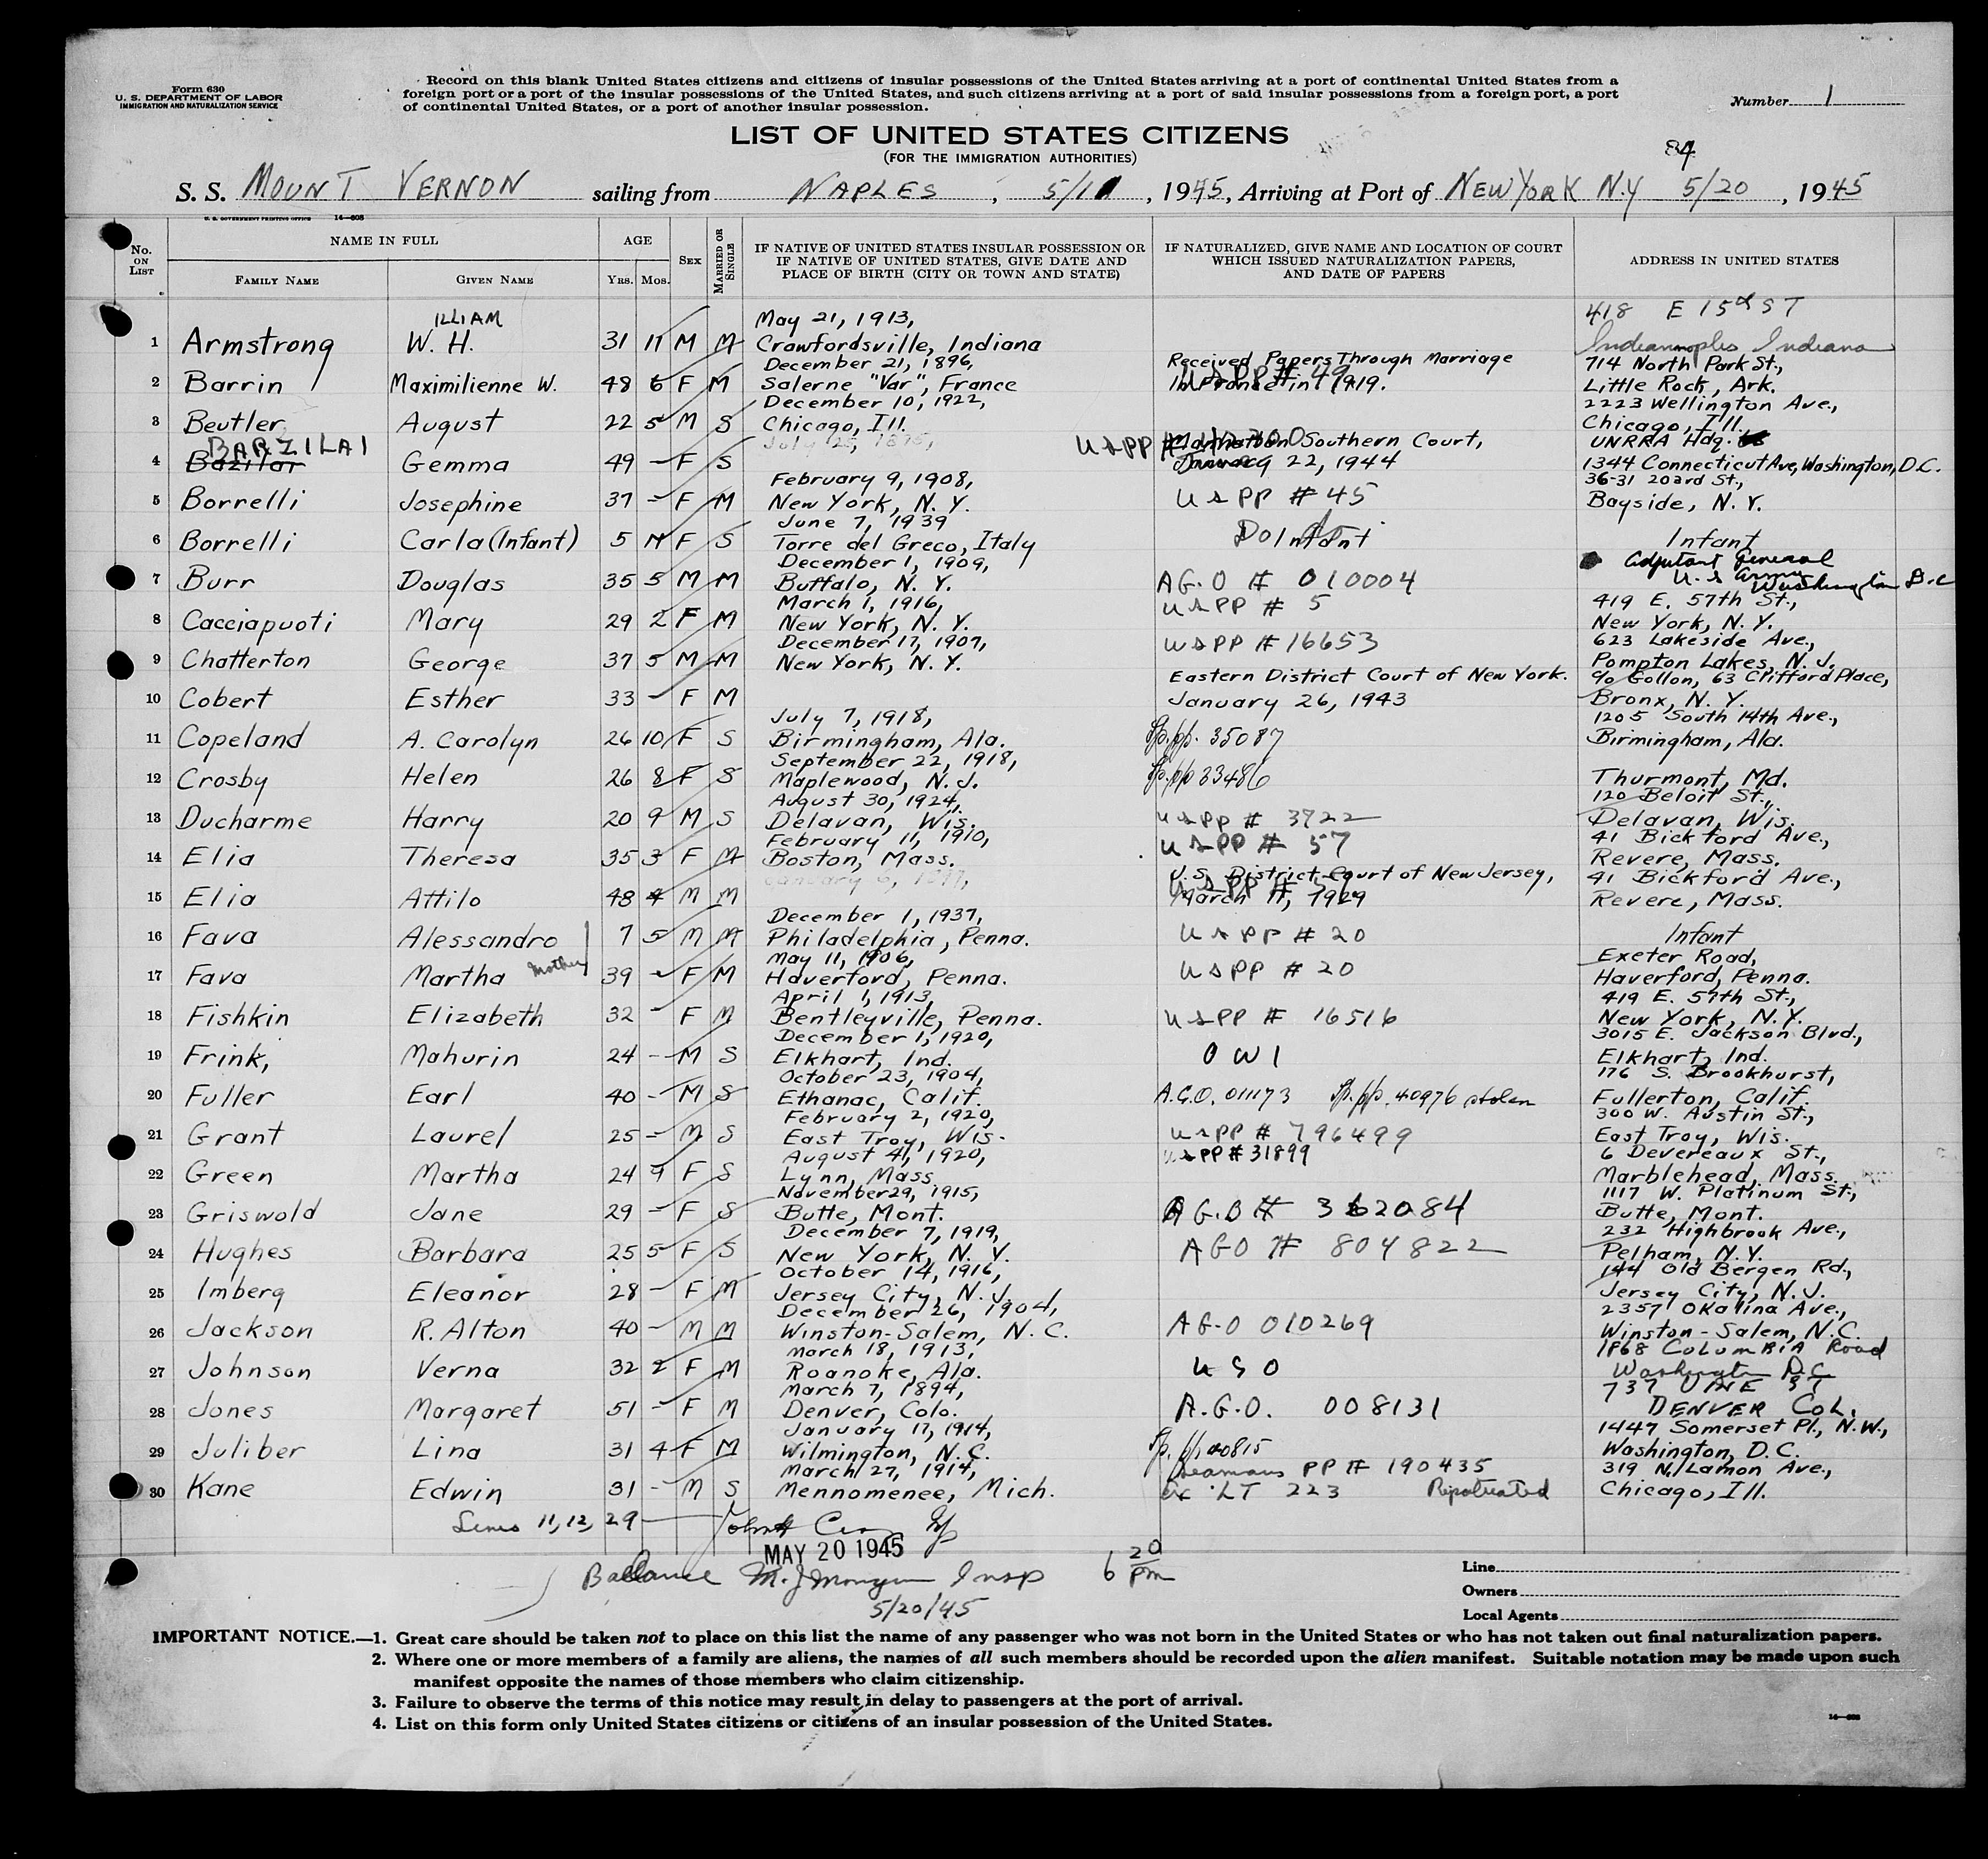 Form 630
U. S. DEPARTMENT OF LABOR
IMMIGRATION AND NATURALIZATION SERVICE
Record on this blank United States citizens and citizens of insular possessions of the United States arriving at a port of continental United States from a
foreign port or a port of the insular possessions of the United States, and such citizens arriving at a port of said insular possessions from a foreign port, a port
of continental United States, or a port of another insular possession.
Number 1
LIST OF UNITED STATES CITIZENS
(FOR THE IMMIGRATION AUTHORITIES)
84
S. S. MOUNT VERNON sailing from NAPLES, 5/11, 1945, Arriving at Port of NEW YORK N.Y 5/20, 1945
U. S. GOVERNMENT PRINTING OFFICE 14—608
No. ON LIST
NAME IN FULL
FAMILY NAME
GIVEN NAME
AGE
YRS. MOS.
SEX
MARRIED OR SINGLE
IF NATIVE OF UNITED STATES INSULAR POSSESSION OR
IF NATIVE OF UNITED STATES, GIVE DATE AND
PLACE OF BIRTH (CITY OR TOWN AND STATE)
IF NATURALIZED, GIVE NAME AND LOCATION OF COURT
WHICH ISSUED NATURALIZATION PAPERS,
AND DATE OF PAPERS
ADDRESS IN UNITED STATES
ILLIAM May 21, 1913, 418 E 15th ST
1 Armstrong W. H. 31 11 M M Crawfordsville, Indiana Indianapolis Indiana
December 21, 1896, Received Papers Through Marriage 714 North Park St.,
2 Barrin Maximilienne W. 48 6 F M Salerne "Var", France In France in 1919. USPP # 49 Little Rock, Ark.
December 10, 1922, 2223 Wellington Ave.,
3 Beutler August 22 5 M S Chicago, Ill. Chicago, Ill.
BARZILAI July 25, 1895, USPP # Southern Court, UNRRA Hdq.
4 Bazilar Gemma 49 - F S January 22, 1944 1344 Connecticut Ave, Washington, D.C.
February 9, 1908, 36-31 203rd St.,
5 Borrelli Josephine 37 - F M New York, N. Y. USPP # 45 Bayside, N. Y.
June 7, 1939
6 Borrelli Carla (Infant) 5 11 F S Torre del Greco, Italy Do Infant Infant
December 1, 1909, Adjutant General
7 Burr Douglas 35 5 M M Buffalo, N. Y. A.G.O # 010004 U.S Army Washington D.C
March 1, 1916, USPP # 5 419 E. 57th St.,
8 Cacciapuoti Mary 29 2 F M New York, N. Y. New York, N. Y.
December 17, 1907, USPP # 16653 623 Lakeside Ave.,
9 Chatterton George 37 5 M M New York, N. Y. Pompton Lakes, N. J.
Eastern District Court of New York. c/o Gollon, 63 Clifford Place,
10 Cobert Esther 33 - F M January 26, 1943 Bronx, N. Y.
July 7, 1918, 1205 South 14th Ave.,
11 Copeland A. Carolyn 26 10 F S Birmingham, Ala. Sp.pp. 35087 Birmingham, Ala.
September 22, 1918,
12 Crosby Helen 26 8 F S Maplewood, N. J. Sp.pp 33486 Thurmont, Md.
August 30, 1924, 120 Beloit St.,
13 Ducharme Harry 20 9 M S Delavan, Wis. USPP # 3722 Delavan, Wis.
February 11, 1910, 41 Bickford Ave.,
14 Elia Theresa 35 3 F M Boston, Mass. USPP # 57 Revere, Mass.
January 6, 1897, U.S. District Court of New Jersey, 41 Bickford Ave.,
15 Elia Attilo 48 4 M M March 11, 1929 Revere, Mass.
December 1, 1937,
16 Fava Alessandro 7 5 M M Philadelphia, Penna. USPP # 20 Infant
May 11, 1906, Exeter Road,
17 Fava Martha Mother 39 - F M Haverford, Penna. USPP # 20 Haverford, Penna.
April 1, 1913, 419 E. 57th St.,
18 Fishkin Elizabeth 32 - F M Bentleyville, Penna. USPP # 16516 New York, N.Y.
December 1, 1920, 3015 E. Jackson Blvd.,
19 Frink, Mahurin 24 - M S Elkhart, Ind. OWI Elkhart, Ind.
October 23, 1904, 176 S. Brookhurst,
20 Fuller Earl 40 - M S Ethanac, Calif. A.G.O. 011173 Sp.pp. 40976 stolen Fullerton, Calif.
February 2, 1920, 300 W. Austin St.,
21 Grant Laurel 25 - M S East Troy, Wis. USPP # 796499 East Troy, Wis.
August 4, 1920, USPP # 31899 6 Devereaux St.,
22 Green Martha 24 9 F S Lynn, Mass. Marblehead, Mass.
November 29, 1915, 1117 W. Platinum St.,
23 Griswold Jane 29 - F S Butte, Mont. A G.O # 362084 Butte, Mont.
December 7, 1919, 232 Highbrook Ave.,
24 Hughes Barbara 25 5 F S New York, N. Y. AGO # 804822 Pelham, N.Y.
October 14, 1916, 144 Old Bergen Rd.,
25 Imberg Eleanor 28 - F M Jersey City, N. J. Jersey City, N. J.
December 26, 1904, 2357 Okalina Ave.,
26 Jackson R. Alton 40 - M M Winston-Salem, N. C. AG.O 010269 Winston-Salem, N.C.
March 18, 1913, 1868 COLUMBIA Road
27 Johnson Verna 32 2 F M Roanoke, Ala. USO Washington DC
March 7, 1894, 737 ST
28 Jones Margaret 51 - F M Denver, Colo. A.G.O. 008131 DENVER COL.
January 17, 1914, 1447 Somerset Pl., N.W.,
29 Juliber Lina 31 4 F M Wilmington, N. C. Sp. pp 40815 Washington, D.C.
March 27, 1914, Seamans PP # 190435 319 N. Lamon Ave.,
30 Kane Edwin 31 - M S Mennomenee, Mich. ex LT 223 Repatriated Chicago, Ill.
Lines 11, 12, 29
MAY 20 1945
Balance Insp 6 20 pm
5/20/45
Line
Owners
Local Agents
IMPORTANT NOTICE.—1. Great care should be taken not to place on this list the name of any passenger who was not born in the United States or who has not taken out final naturalization papers.
2. Where one or more members of a family are aliens, the names of all such members should be recorded upon the alien manifest. Suitable notation may be made upon such
manifest opposite the names of those members who claim citizenship.
3. Failure to observe the terms of this notice may result in delay to passengers at the port of arrival.
4. List on this form only United States citizens or citizens of an insular possession of the United States.